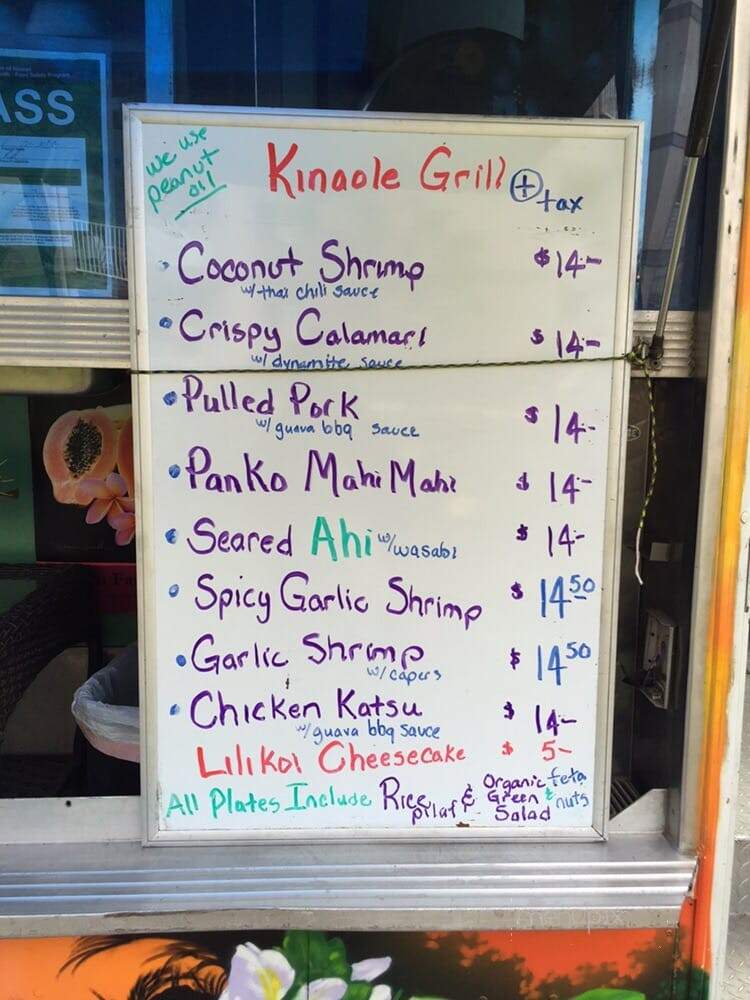 ASS
we use
peanut
oil
Kinaole Grill + tax
• Coconut Shrimp $14-
w/ thai chili sauce
• Crispy Calamari $14-
w/ dynamite sauce
• Pulled Pork $14-
w/ guava bbq sauce
• Panko Mahi Mahi $14-
• Seared Ahi w/ wasabi $14-
• Spicy Garlic Shrimp $14.50
• Garlic Shrimp $14.50
w/ capers
• Chicken Katsu $14-
w/ guava bbq sauce
Lilikoi Cheesecake $5-
All Plates Include Rice pilaf & Organic Green Salad feta & nuts